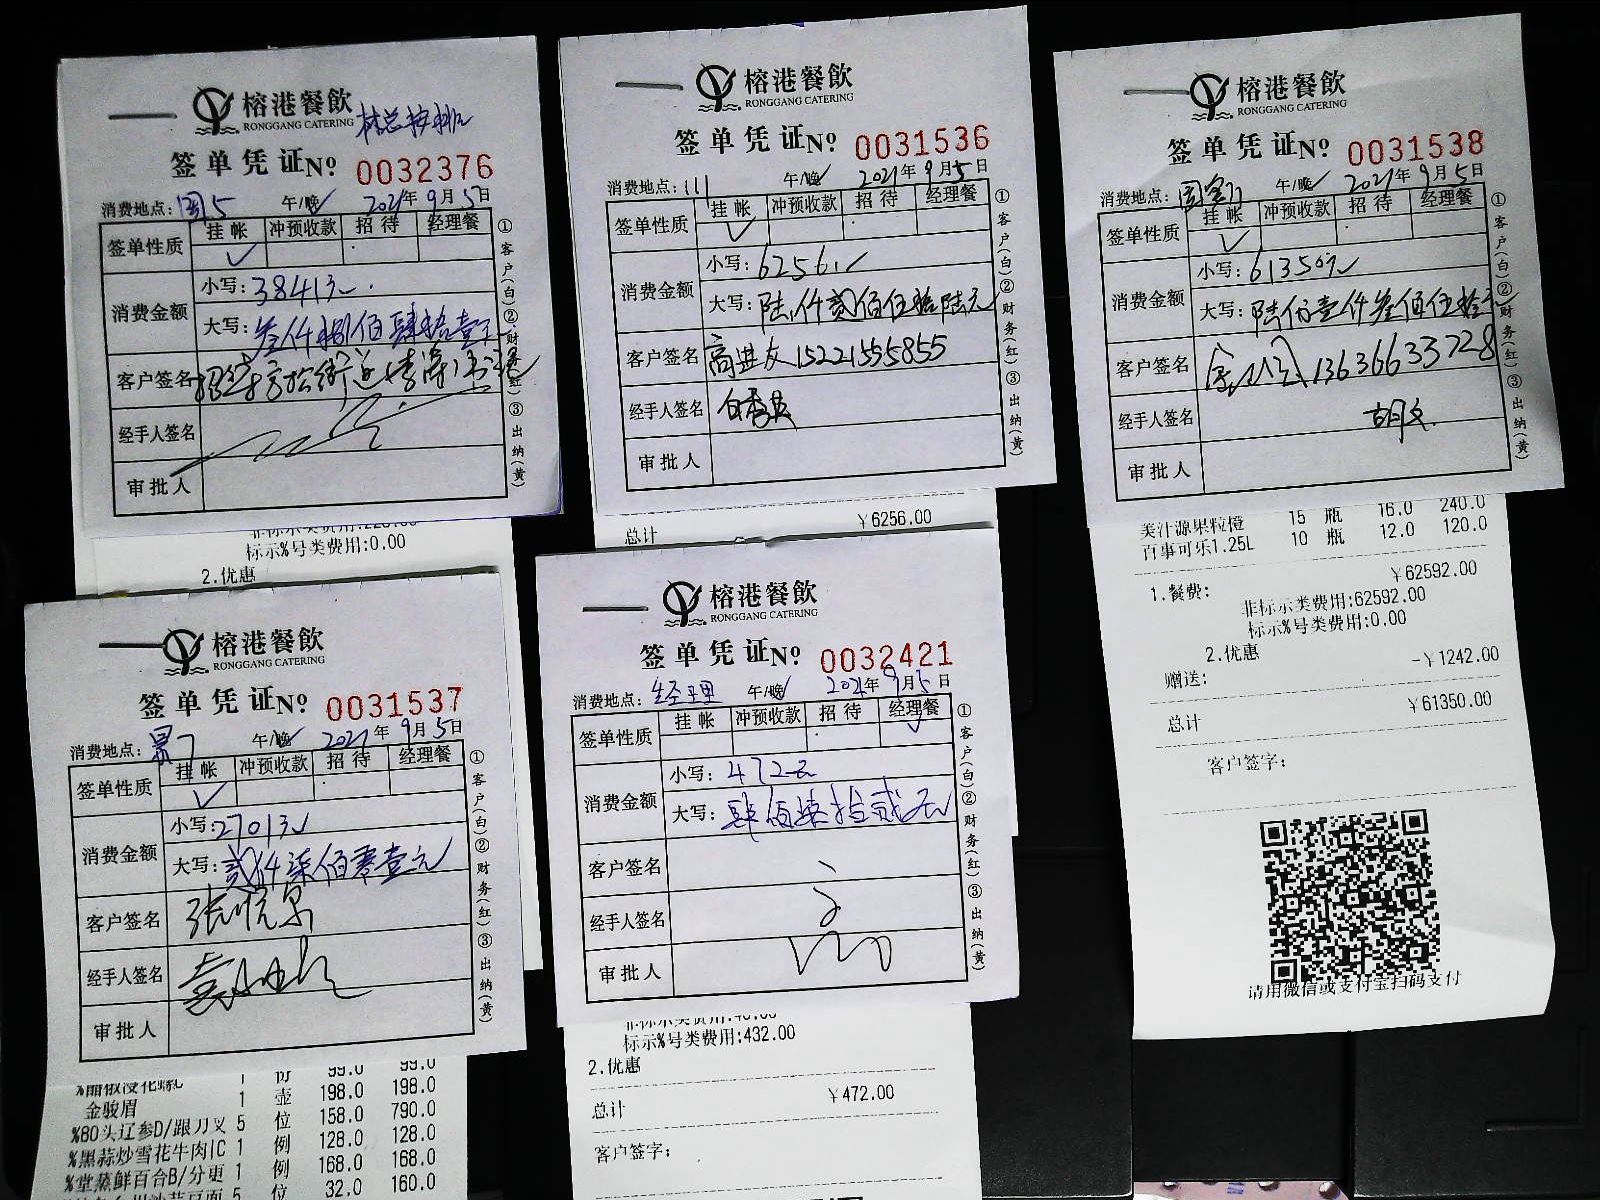 榕港餐飲
RONGGANG CATERING
林总按排
签单凭证№ 0032376
消费地点: 阁5 午/晚✓ 2021年9月5日
签单性质 挂帐 冲预收款 招待 经理餐
✓
消费金额 小写: 3841元
大写: 叁仟捌佰肆拾壹元
客户签名
经手人签名
审批人
①客户(白)②财务(红)③出纳(黄)
标示%号类费用:0.00
2.优惠
榕港餐飲
RONGGANG CATERING
签单凭证№ 0031536
消费地点: 111 午/晚✓ 2021年9月5日
签单性质 挂帐 冲预收款 招待 经理餐
✓
消费金额 小写: 6256元
大写: 陆仟贰佰伍拾陆元
客户签名 高进友 15221555855
经手人签名
审批人
①客户(白)②财务(红)③出纳(黄)
总计 ¥6256.00
榕港餐飲
RONGGANG CATERING
签单凭证№ 0031538
消费地点: 午/晚✓ 2021年9月5日
签单性质 挂帐 冲预收款 招待 经理餐
✓
消费金额 小写: 61350元
大写: 陆万壹仟叁佰伍拾元
客户签名 13636633728
经手人签名 胡文
审批人
①客户(白)②财务(红)③出纳(黄)
美汁源果粒橙 15 瓶 16.0 240.0
百事可乐1.25L 10 瓶 12.0 120.0
1.餐费: ¥62592.00
非标示类费用:62592.00
标示%号类费用:0.00
2.优惠
赠送: -¥1242.00
总计 ¥61350.00
客户签字:
请用微信或支付宝扫码支付
榕港餐飲
RONGGANG CATERING
签单凭证№ 0031537
消费地点: 午/晚✓ 2021年9月5日
签单性质 挂帐 冲预收款 招待 经理餐
✓
消费金额 小写: 2701元
大写: 贰仟柒佰零壹元
客户签名
经手人签名
审批人
①客户(白)②财务(红)③出纳(黄)
1 份 99.0 99.0
金骏眉 1 壶 198.0 198.0
%80头辽参D/跟刀叉 5 位 158.0 790.0
%黑蒜炒雪花牛肉|C 1 例 128.0 128.0
%堂蒸鲜百合B/分更 1 例 168.0 168.0
5 位 32.0 160.0
榕港餐飲
RONGGANG CATERING
签单凭证№ 0032421
消费地点: 经理 午/晚✓ 2021年9月5日
签单性质 挂帐 冲预收款 招待 经理餐
✓
消费金额 小写: 472元
大写: 肆佰柒拾贰元
客户签名
经手人签名
审批人
①客户(白)②财务(红)③出纳(黄)
标示%号类费用:432.00
2.优惠
总计 ¥472.00
客户签字: